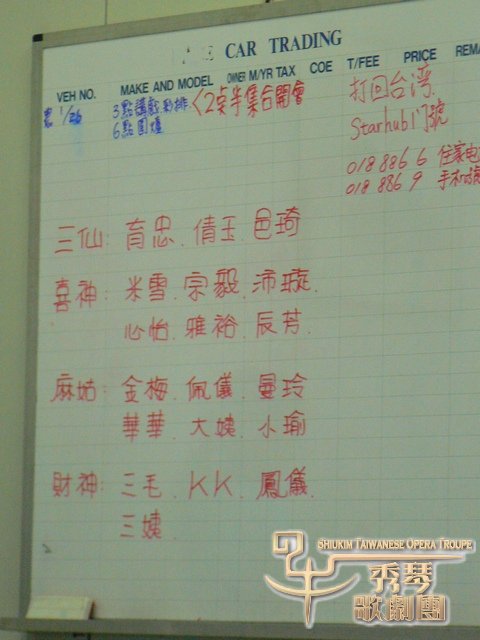 CAR TRADING
VEH NO. MAKE AND MODEL OWNER M/YR TAX COE T/FEE PRICE REMA
1/26 3點講戲彩排 <2点半集合開會
6點圍爐
打回台灣
Starhub門號
018 886 6 住家电
018 886 9 手机
三仙: 育忠. 倩玉. 邑琦
喜神: 米雪. 宗毅. 沛璇.
心怡. 雅裕. 辰芳.
麻姑: 金梅. 佩儀. 曼玲
華華. 大姨. 小瑜
財神: 三毛. KK. 鳳儀.
三姨
SHIUKIM TAIWANESE OPERA TROUPE
秀琴
歌劇團